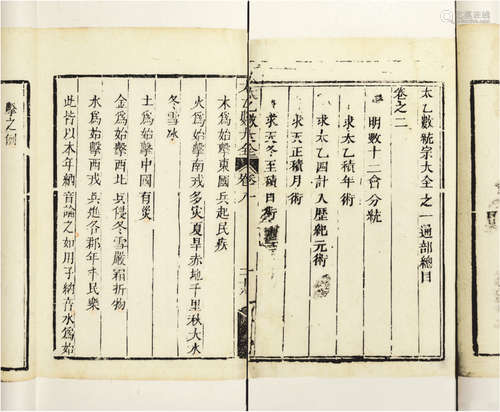 太乙數統宗大全之一通部總目
卷之二
明數十二會分統
求太乙積年術
求太乙四計入歷紀元術
求天正積月術
求天冬至積日術
太乙數大全 卷八
木爲始擊東國兵起民疾
火爲始擊南戎多灾夏旱赤地千里秋大水
冬雪冰
土爲始擊中國有災
金爲始擊西北兵侵冬雪嚴霜折物
水爲始擊西戎兵進各郡年丰民樂
此皆以本年納音論之如用子納音水爲始
擊之例